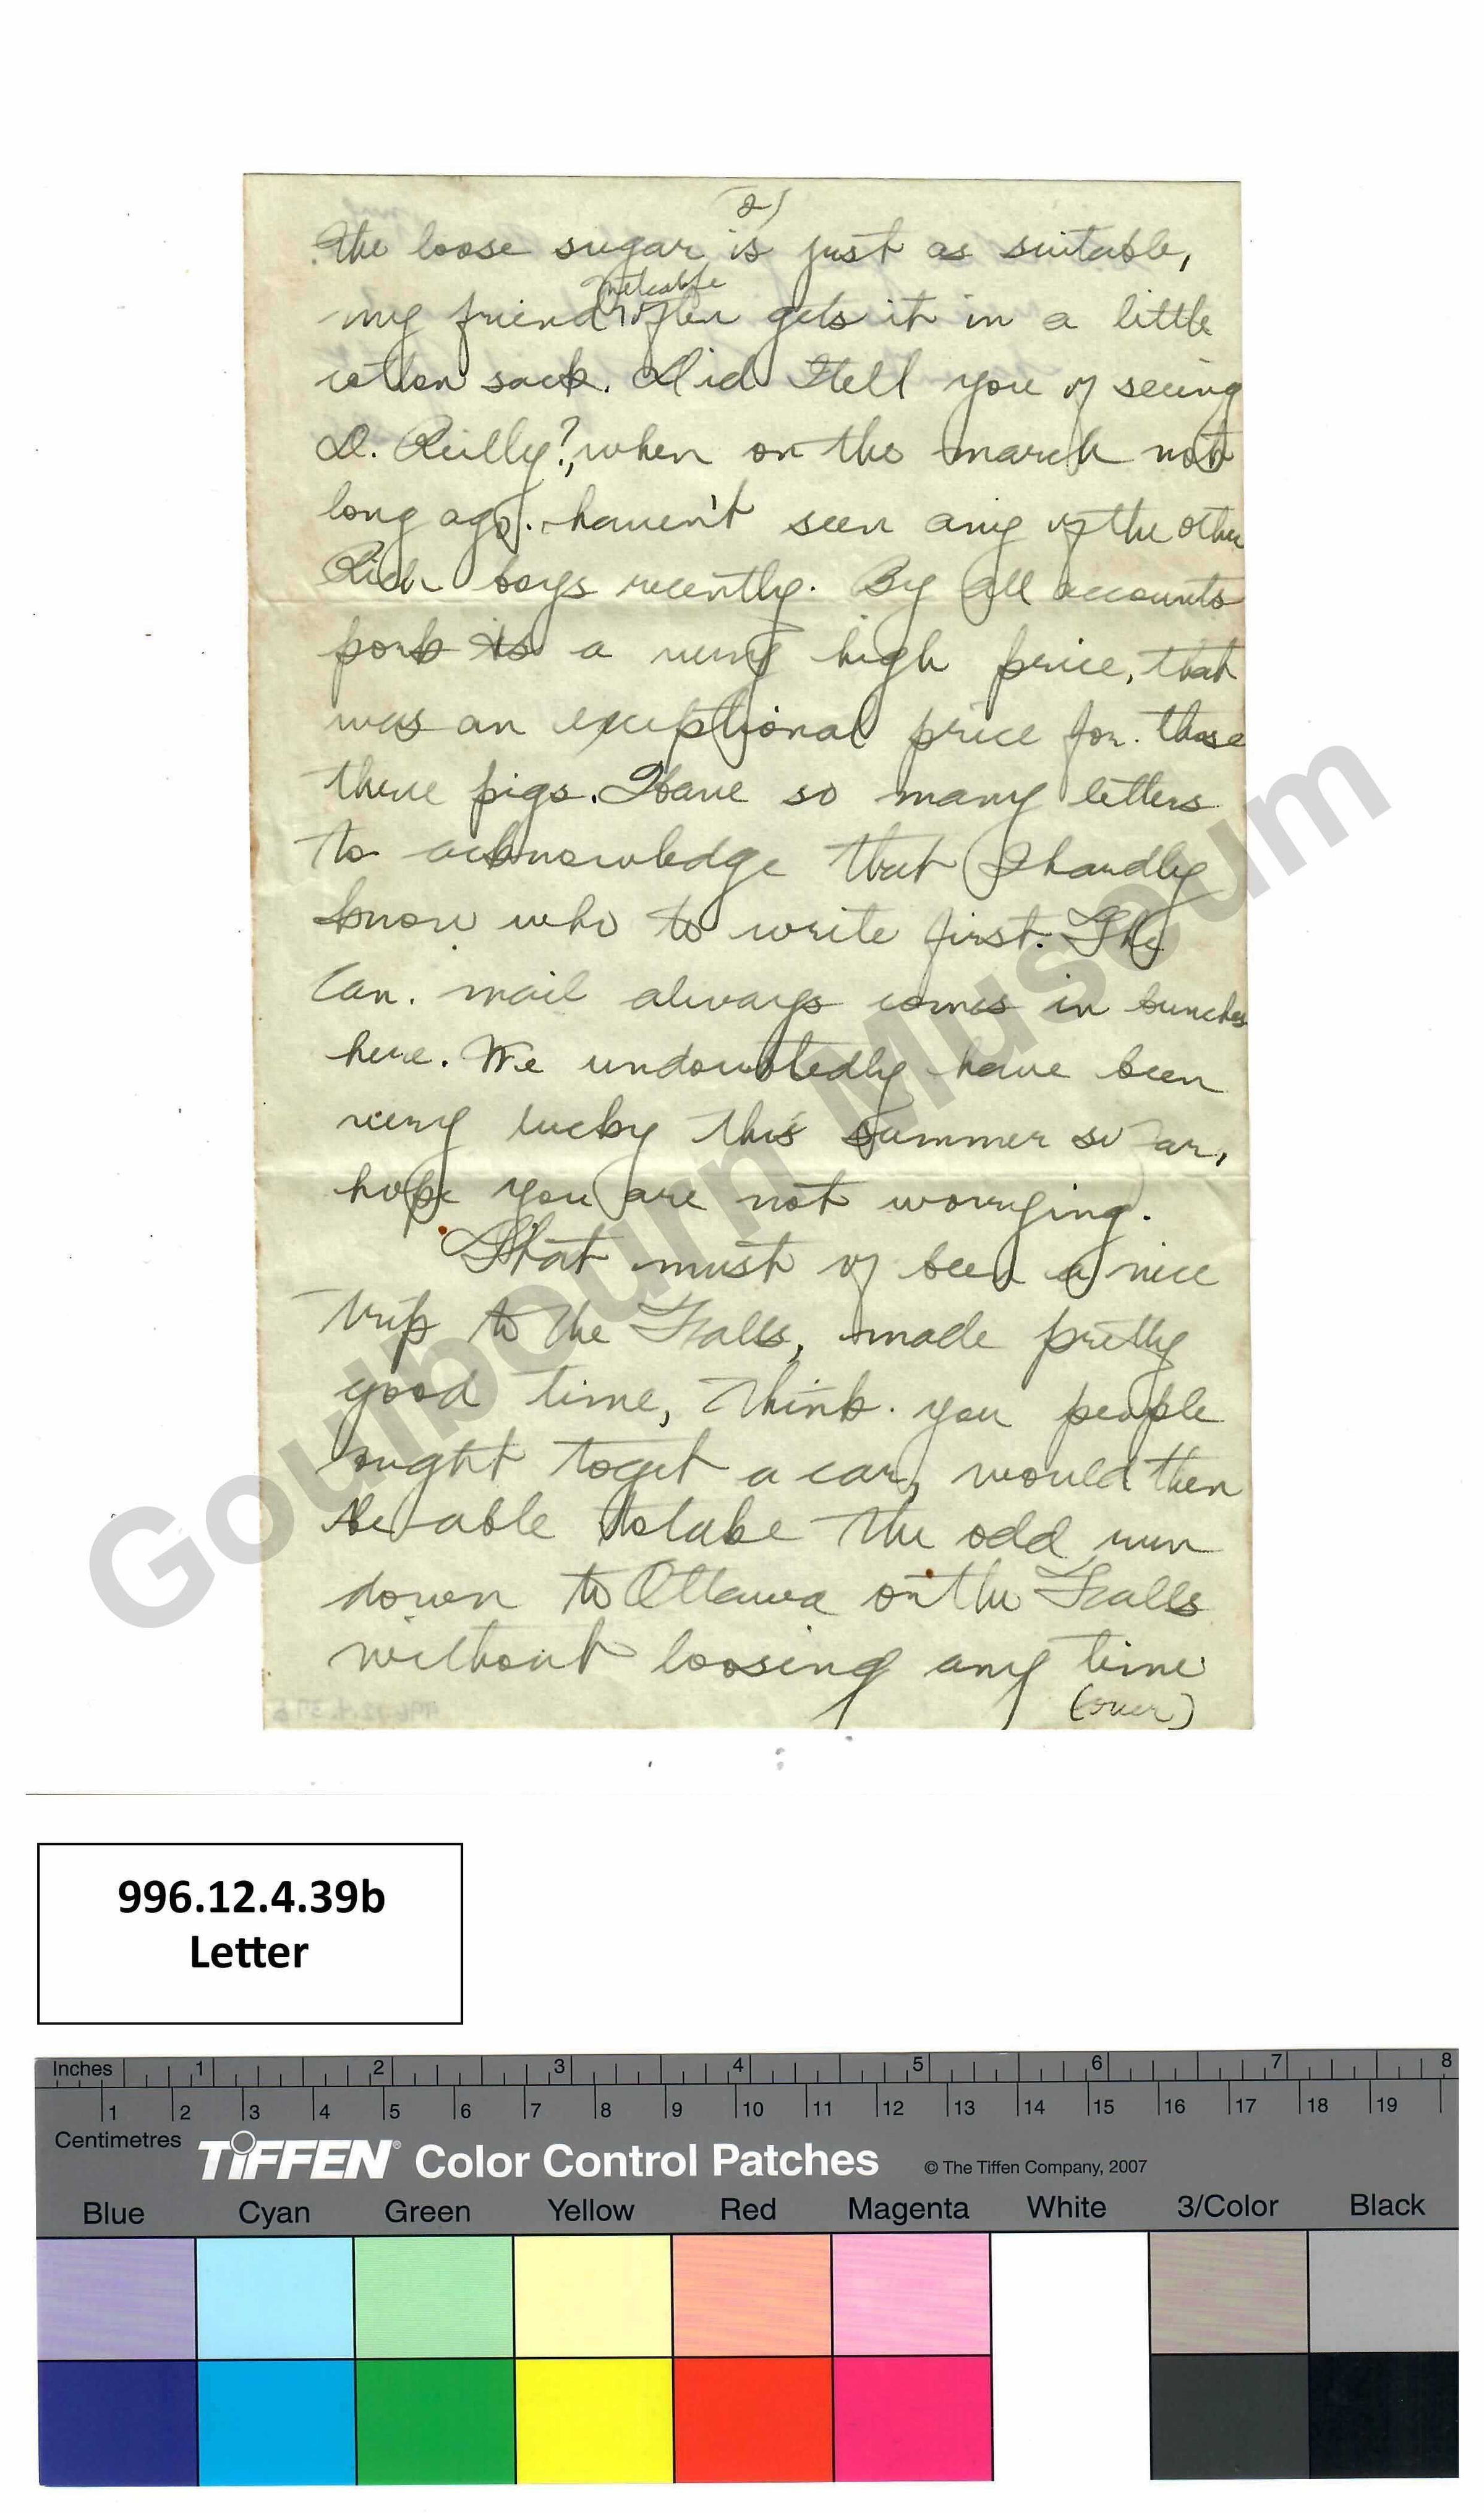 2)
the loose sugar is just as suitable,
Metcalfe
my friend often gets it in a little
cotton sack. Did I tell you of seeing
D. Reilly?, when on the march not
long ago. haven't seen any of the other
Rich boys recently. By all accounts
pork is a very high price, that
was an exceptional price for those
three pigs. Have so many letters
to acknowledge that I hardly
know who to write first. The
Can. mail always comes in bunches
here. We undoubtedly have been
very lucky this summer so far,
hope you are not worrying.
That must of been a nice
trip to the Falls, made pretty
good time, think you people
ought to get a car, would then
be able to take the odd run
down to Ottawa or the Falls
without loosing any time
(over)
Goulbourn Museum
996.12.4.39b
Letter
Inches 1 2 3 4 5 6 7 8
1 2 3 4 5 6 7 8 9 10 11 12 13 14 15 16 17 18 19
Centimetres
TIFFEN® Color Control Patches © The Tiffen Company, 2007
Blue Cyan Green Yellow Red Magenta White 3/Color Black